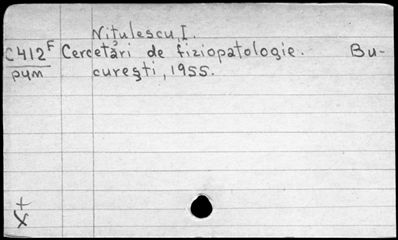 Niţulescu, I.
C412F Cercetări de fiziopatologie. Bu-
pum cureşti, 1955.
+
X